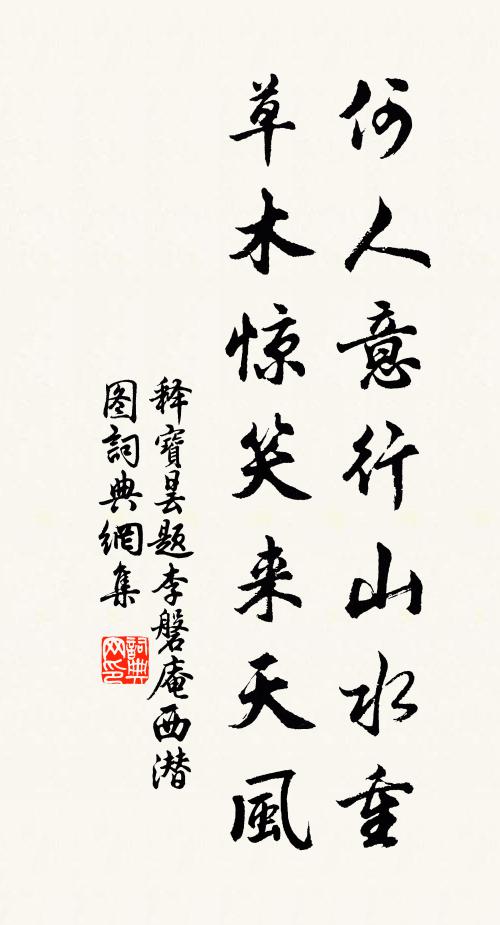 何人意行山水重
草木惊笑来天風
释寶昙题李磐庵西潜
图詞典網集
詞典網印